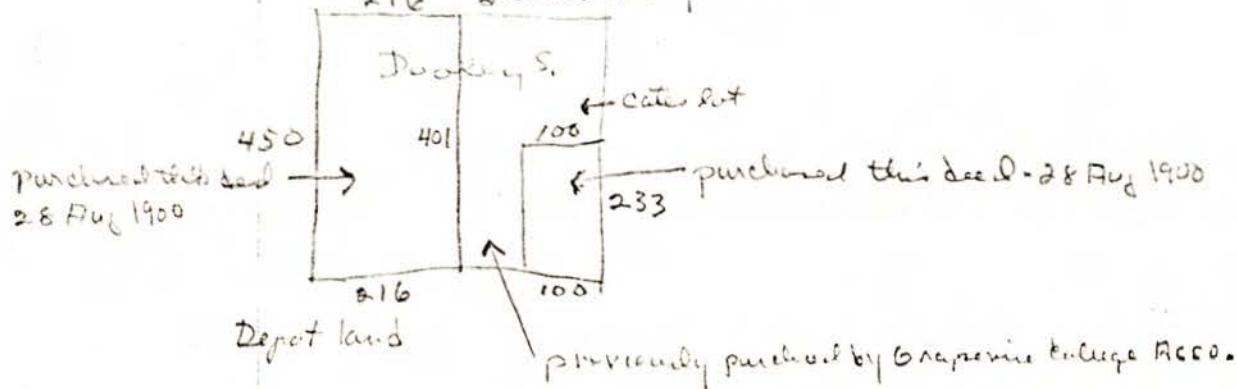 216
Dooley S.
← Cates lot
450
401
100
purchased this deed
28 Aug 1900
purchased this deed - 28 Aug 1900
233
216
100
Depot land
previously purchased by Grapevine College Asso.